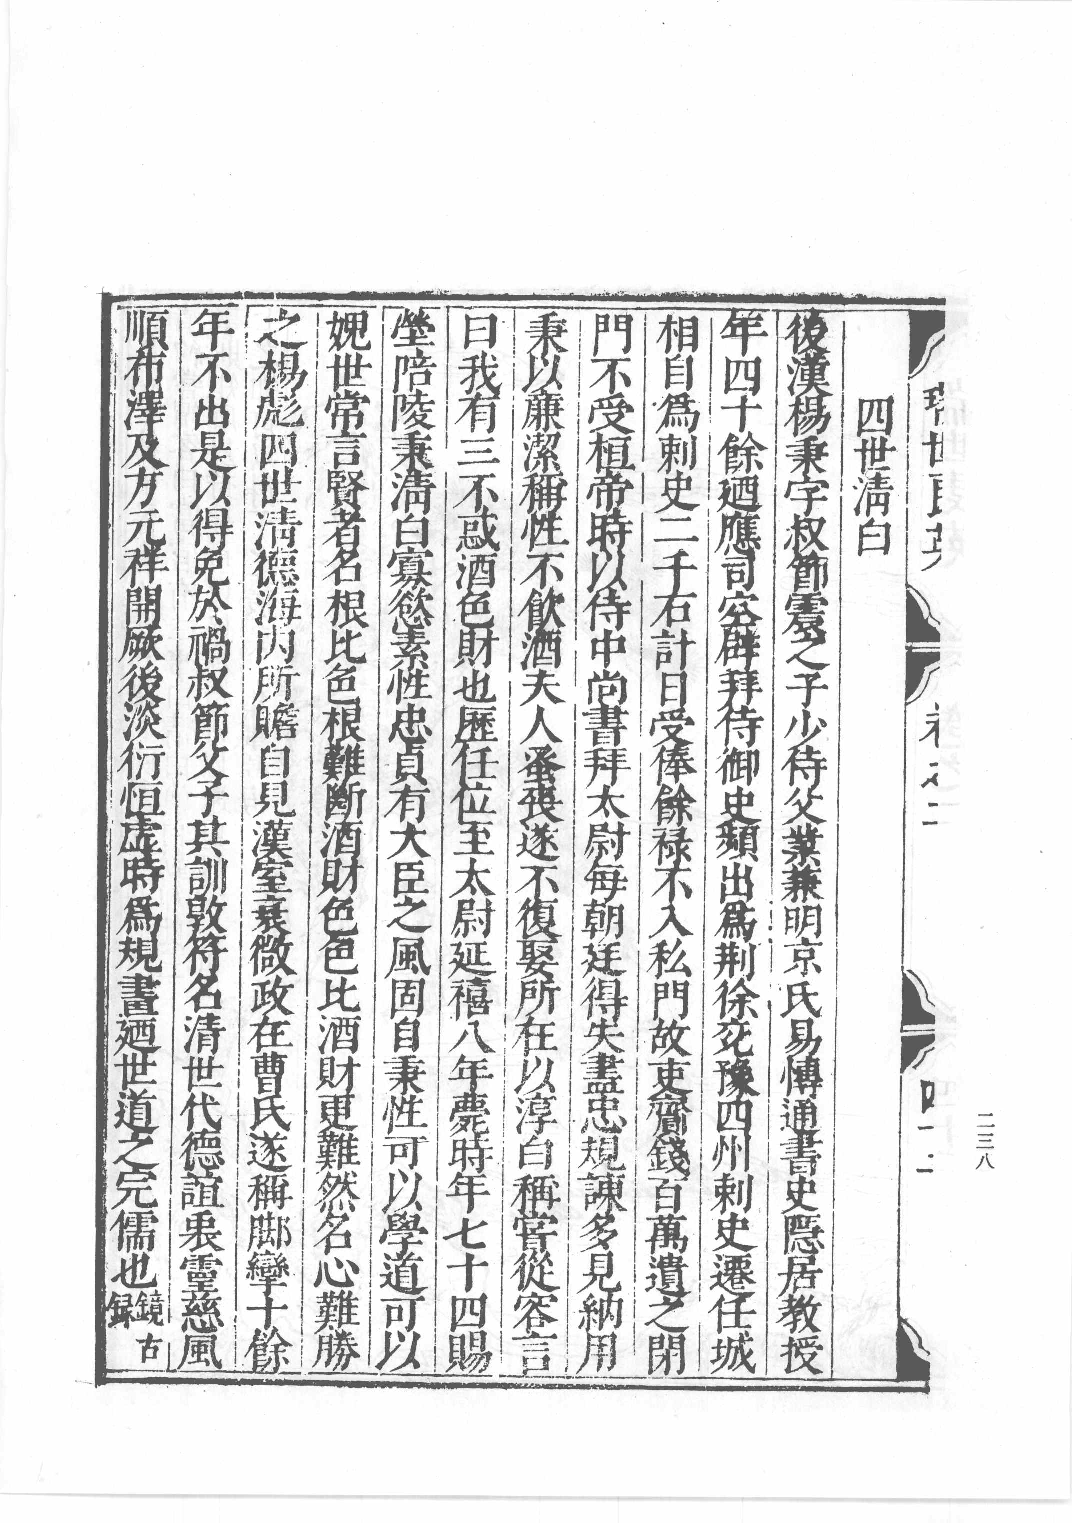 四世清白
後漢楊秉字叔節震之子少待父業兼明京氏易傳通書史隱居教授
年四十餘廼應司空辟拜侍御史頻出為荆徐兖豫四州刺史遷任城
相自為刺史二千石計日受俸餘禄不入私門故吏齎錢百萬遺之閉
門不受桓帝時以侍中尚書拜太尉每朝廷得失盡忠規諫多見納用
秉以廉潔稱性不飲酒夫人蚤喪遂不復娶所在以淳白稱嘗從容言
曰我有三不惑酒色財也歷任位至太尉延禧八年薨時年七十四賜
塋陪陵秉淸白寡慾素性忠貞有大臣之風固自秉性可以學道可以
娩世常言賢者名根比色根難斷酒財色色比酒財更難然名心難勝
之楊彪四世清德海内所贍自見漢室衰微政在曹氏遂稱脚攣十餘
年不出是以得免於禍叔節父子其訓敦符名清世代德誼表靈慈風
順布澤及方元祥開厥後淡衍恒虚時為規畫廼世道之完儒也鏡古録
世
卷之二
二三八